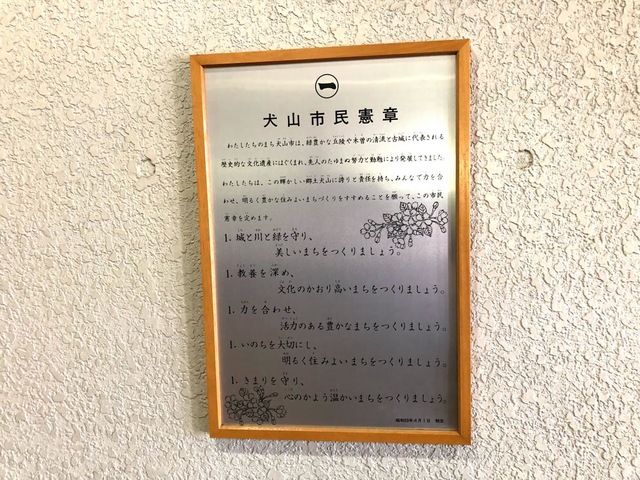 犬山市民憲章
わたしたちのまち犬山市は、緑豊かな丘陵や木曽の清流と古城に代表される
歴史的な文化遺産にはぐくまれ、先人のたゆまぬ努力と勤勉により発展してきました。
わたしたちは、この輝かしい郷土犬山に誇りと責任を持ち、みんなで力を合
わせ、明るく豊かな住みよいまちづくりをすすめることを願って、この市民
憲章を定めます。
1. 城と川と緑を守り、
美しいまちをつくりましょう。
1. 教養を深め、
文化のかおり高いまちをつくりましょう。
1. 力を合わせ、
活力のある豊かなまちをつくりましょう。
1. いのちを大切にし、
明るく住みよいまちをつくりましょう。
1. きまりを守り、
心のかよう温かいまちをつくりましょう。